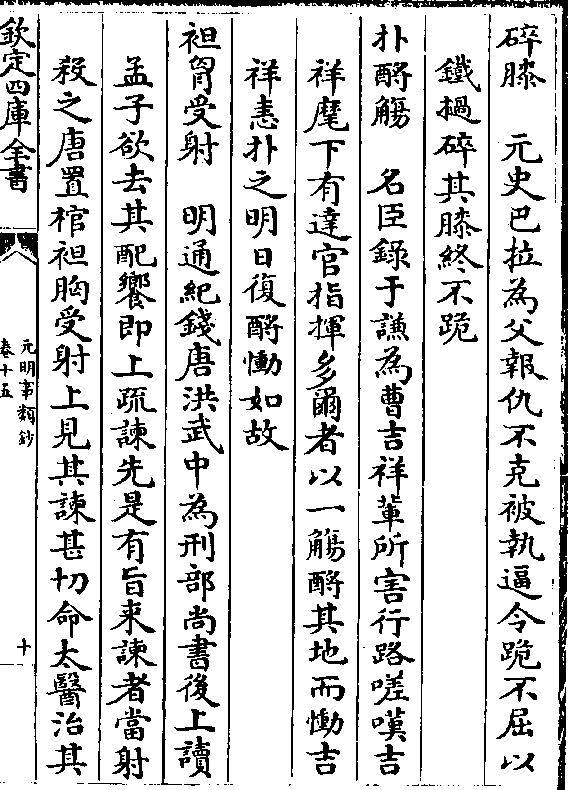 碎膝　元史巴拉為父報仇不克被執逼令跪不屈以
鐵撾碎其膝終不跪
扑酹觴　名臣錄于謙為曹吉祥輩所害行路嗟嘆吉
祥麾下有達官指揮多爾者以一觴酹其地而慟吉
祥恚扑之明日復酹慟如故
袒胷受射　明通紀錢唐洪武中為刑部尚書後上讀
孟子欲去其配饗即上疏諫先是有旨来諫者當射
殺之唐置棺袒胸受射上見其諫甚切命太醫治其
欽定四庫全書
元明事類鈔
卷十五
十